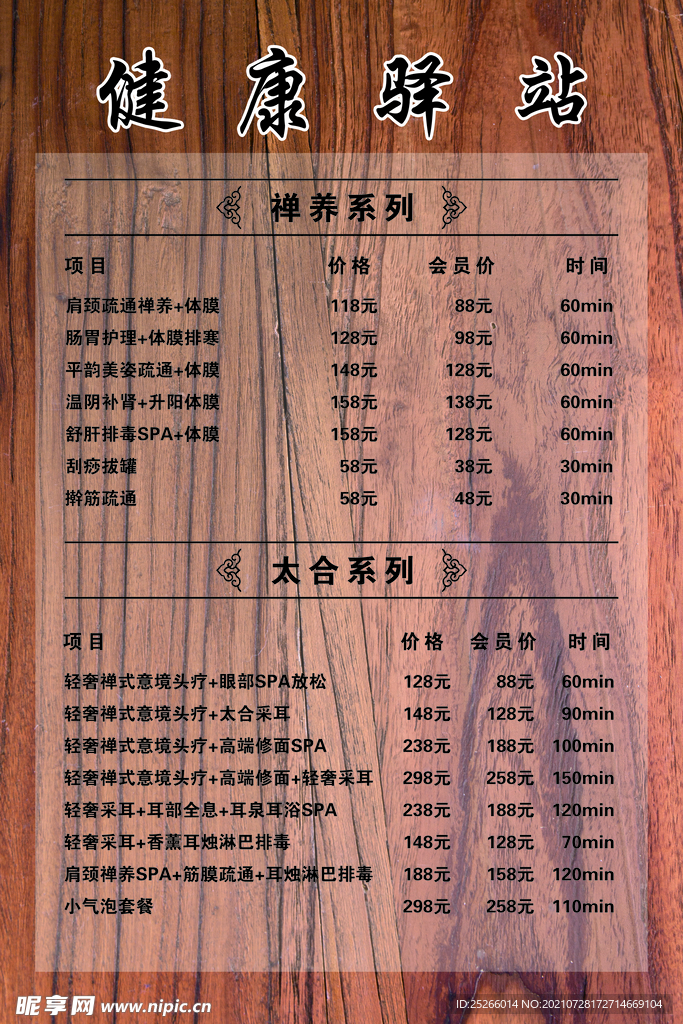 健康驿站
禅养系列
项目 价格 会员价 时间
肩颈疏通禅养+体膜 118元 88元 60min
肠胃护理+体膜排寒 128元 98元 60min
平韵美姿疏通+体膜 148元 128元 60min
温阴补肾+升阳体膜 158元 138元 60min
舒肝排毒SPA+体膜 158元 128元 60min
刮痧拔罐 58元 38元 30min
擀筋疏通 58元 48元 30min
太合系列
项目 价格 会员价 时间
轻奢禅式意境头疗+眼部SPA放松 128元 88元 60min
轻奢禅式意境头疗+太合采耳 148元 128元 90min
轻奢禅式意境头疗+高端修面SPA 238元 188元 100min
轻奢禅式意境头疗+高端修面+轻奢采耳 298元 258元 150min
轻奢采耳+耳部全息+耳泉耳浴SPA 238元 188元 120min
轻奢采耳+香薰耳烛淋巴排毒 148元 128元 70min
肩颈禅养SPA+筋膜疏通+耳烛淋巴排毒 188元 158元 120min
小气泡套餐 298元 258元 110min
昵享网 www.nipic.cn ID:25266014 NO:20210728172714669104